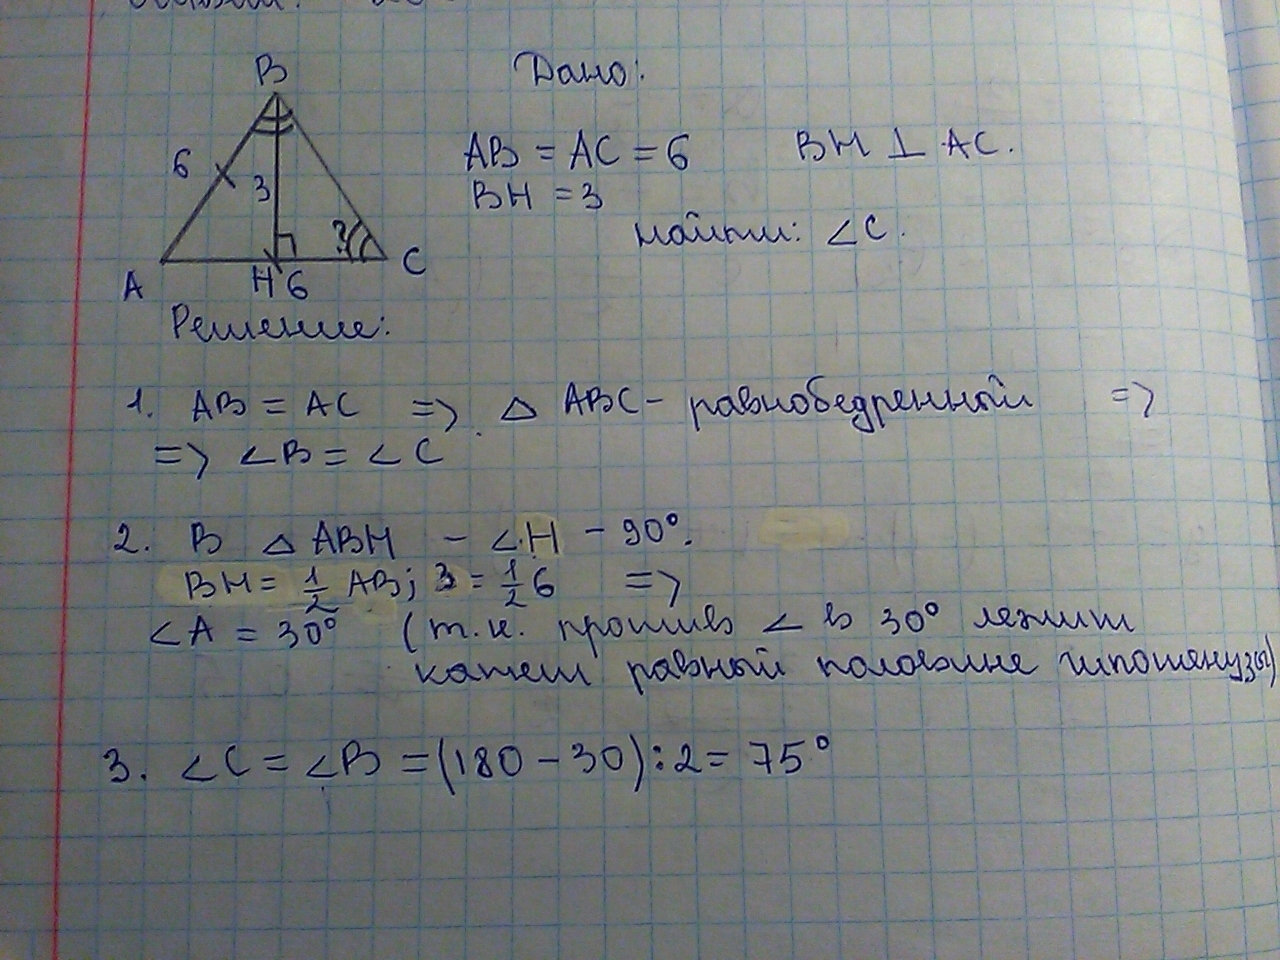 B
Дано:
6
3
?
A
H 6
C
AB = AC = 6 BH ⊥ AC.
BH = 3
Найти: ∠C.
Решение:
1. AB = AC => △ ABC - равнобедренный =>
=> ∠B = ∠C
2. В △ ABH - ∠H - 90°.
BH = 1/2 AB; 3 = 1/2 6 =>
∠A = 30° (т.к. против ∠ в 30° лежит
катет равный половине гипотенузы)
3. ∠C = ∠B = (180 - 30) : 2 = 75°